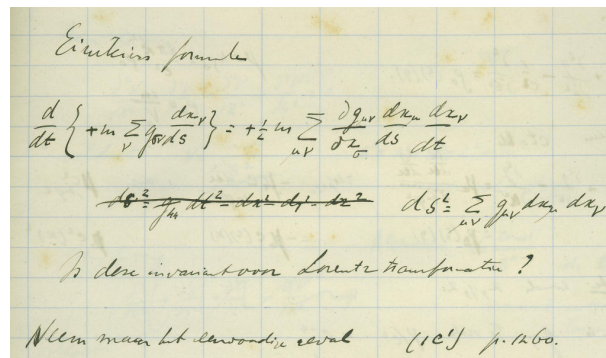 Einsteins formule
d/dt { + m Σ_ν g_σν dx_ν/ds } = + ½ m Σ_μν ∂g_μν/∂x_σ dx_μ/ds dx_ν/dt
ds² = g₄₄ dt² - dx² - dy² - dz² ds² = Σ_μν g_μν dx_μ dx_ν
Is deze invariant voor Lorentz transformatie ?
Neem maar het eenvoudige geval (1c') p. 1260.